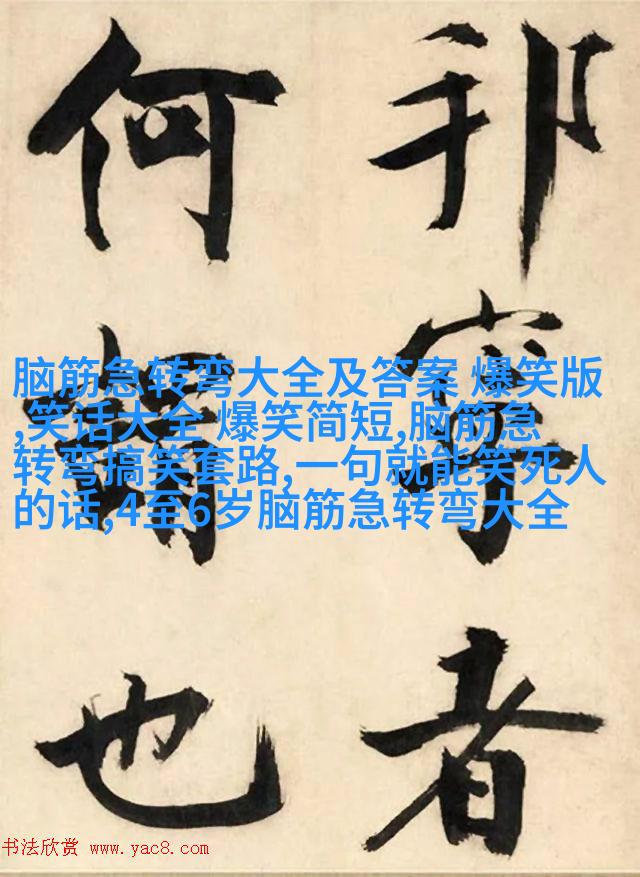 邦寧者
何謂也
脑筋急转弯大全及答案 爆笑版
,笑话大全 爆笑简短,脑筋急
转弯搞笑套路,一句就能笑死人
的话,4至6岁脑筋急转弯大全
书法欣赏 www.yac8.com